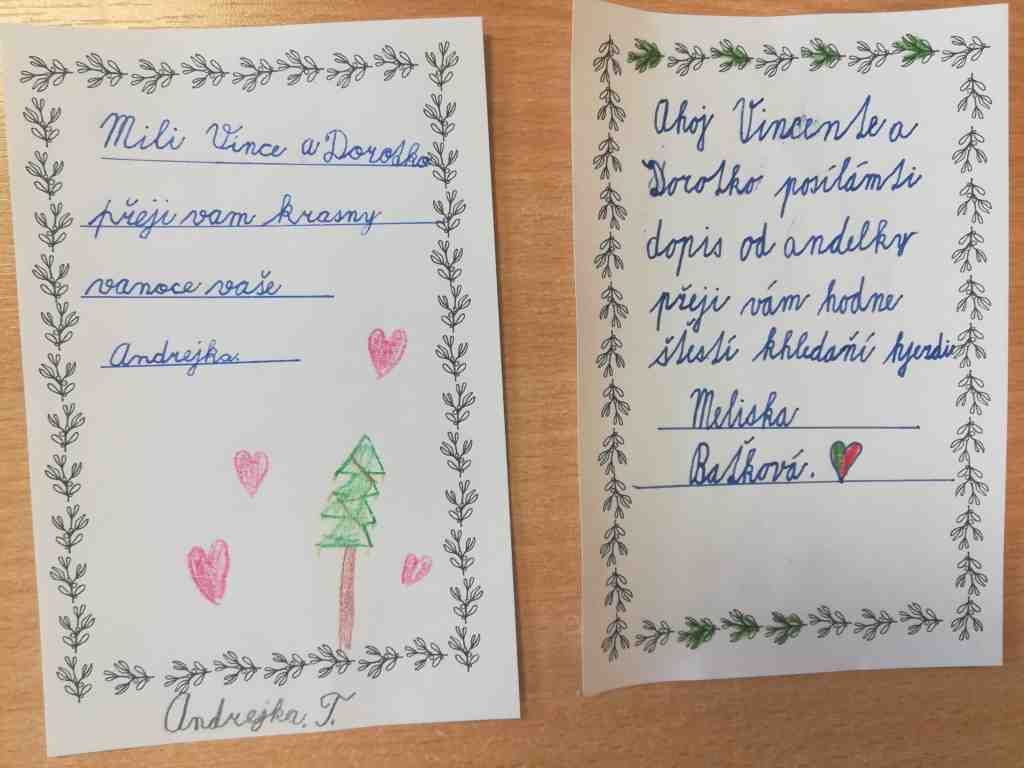 Mili Vince a Dorotko
přeji vam krasny
vanoce vaše
Andrejka.
Andrejka. T.
Ahoj Vincente a
Dorotko posílámti
dopis od andelky
přeji vám hodne
štestí khledańí
Meliska
Baťková.